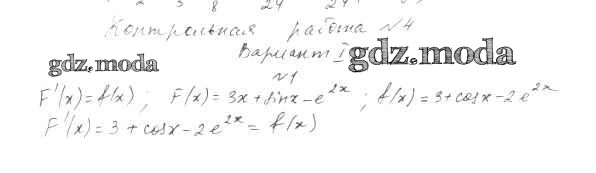 Контрольная работа №4
Вариант I
gdz.moda gdz.moda
№1
F'(x) = f(x) ; F(x) = 3x + sinx – e^2x ; f(x) = 3 + cosx – 2e^2x
F'(x) = 3 + cosx – 2e^2x = f(x)